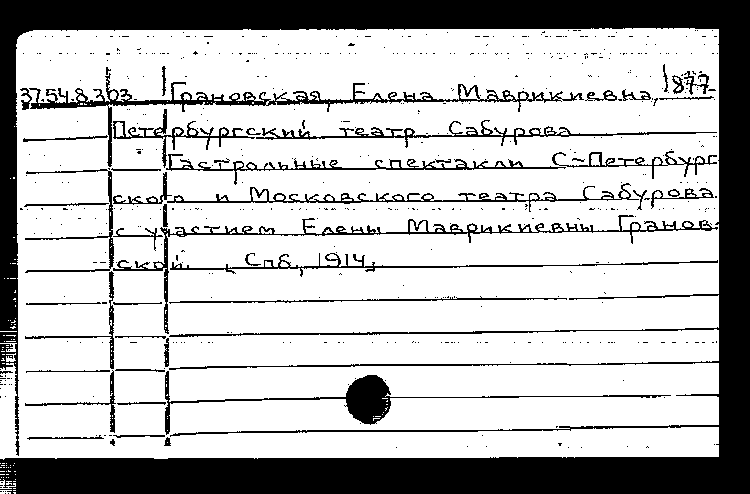 37.54.8.303 Грановская, Елена Маврикиевна, 1877-
Петербургский театр Сабурова
Гастрольные спектакли С-Петербург-
ского и Московского театра Сабурова
с участием Елены Маврикиевны Гранов-
ской. [Спб, 1914]